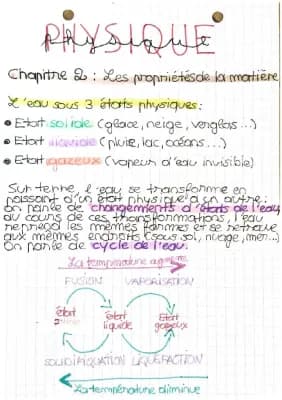 PHYSIQUE
physique
Chapitre 2 : Les propriétés de la matière
L'eau sous 3 états physiques :
• Etat solide (glace, neige, verglas...)
• Etat liquide (pluie, lac, océans...)
• Etat gazeux (vapeur d'eau invisible)
Sur terre, l'eau se transforme en
passant d'un état physique à un autre :
On parle de changements d'états de l'eau,
au cours de ces transformations, l'eau
reprend les mêmes formes et se retrouve
aux mêmes endroits (sous sol, nuage, mer...)
On parle de cycle de l'eau.
La température augmente
FUSION VAPORISATION
état état Etat
liquide gazeux
SOLIDIFIQUATION LIQUEFACTION
La température diminue